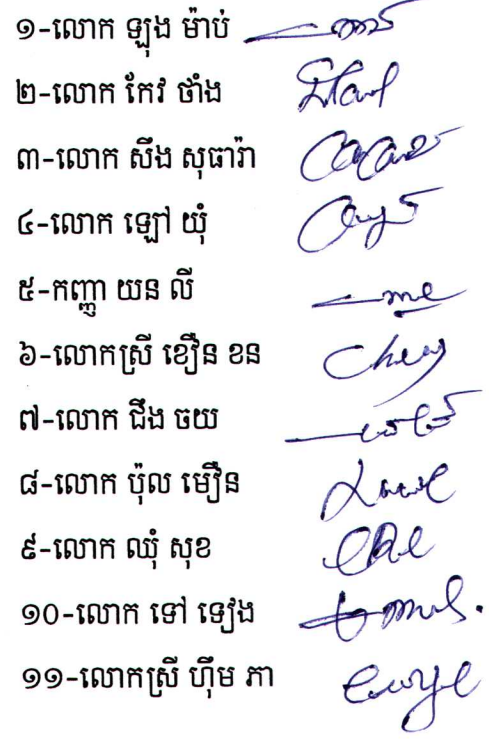 ១-លោក ឡុង ម៉ាប់
២-លោក កែវ ថាំង
៣-លោក សឹង សុធារ៉ា
៤-លោក ឡៅ យុំ
៥-កញ្ញា យន លី
៦-លោកស្រី ខឿន ខន
៧-លោក ជឹង ចយ
៨-លោក ប៉ុល មឿន
៩-លោក ឈុំ សុខ
១០-លោក ទៅ ទៀង
១១-លោកស្រី ហ៊ឹម ភា